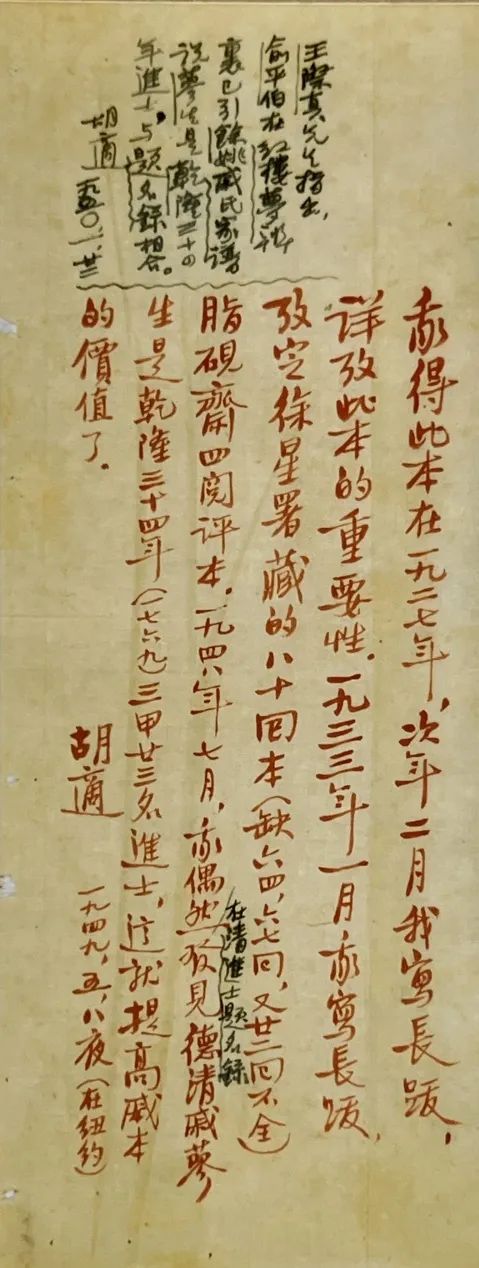 王際真先生指出，
俞平伯在紅樓夢辨
裏已引餘姚戚氏家譜
说蓼生是乾隆三十四
年進士，与題名錄相合。
胡適 一九五〇、一、廿三
我得此本在一九二七年，次年二月我寫長跋，
詳攷此本的重要性。一九三三年一月我寫長跋，
攷定徐星署藏的八十回本（缺六四，六七回，又廿二回不全）
脂硯齋四閱評本。一九四八年七月，我偶然
在清進士題名錄
發見德清戚蓼
生是乾隆三十四年（一七六九）三甲廿三名進士，這就提高戚本
的價值了。
胡適
一九四九，五，八夜（在紐約）